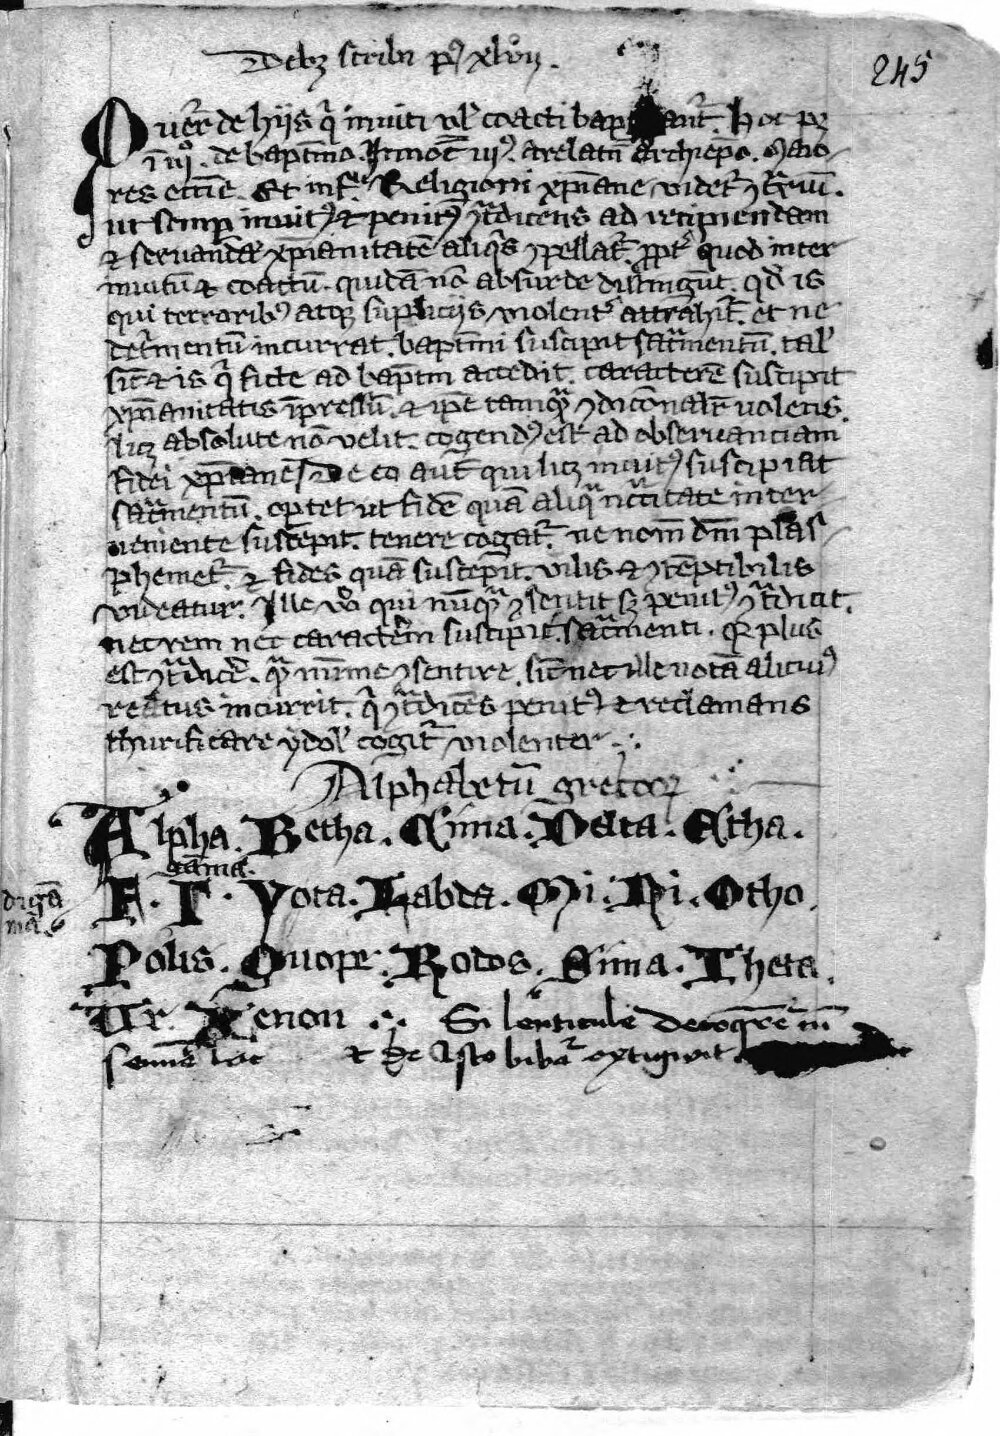 245
Debz scribi p9 xlvij.
Querr de hijs q̄ inuiti ul' coacti bapt antr. Hoc pz
ī iij°. de bapt̄mo. Innoc̄ iij9. arelatn̄ archiepo. Maio-
res ecc̄ie. Et infra Religioni xp̄iane videtr ɔtrium.
ut semp inuit9 ⁊ penit9 ɔtradicens ad recipiendam
⁊ seruandā xp̄ianitatē aliq̄s ɔpellatr. ppt' quod inter
inuitū ⁊ coactū. quidā nō absurde distingūt. qd' is
qui terrorib9 atqz supliciis violentr attrahitr. et ne
detrimentū incurrat. bapt̄mi suscipit sacramentū. tal'
sic̄ ⁊ is q̄ ficte ad bapt̄m accedit. caracterē suscipit
xp̄ianitatis īpressū. ⁊ ip̄e tamq̄ ɔdic̄onalr uolens.
licz absolute nō velit. cogend9 est ad obseruanciam
fidei xp̄iane. De eo aut̄ qui licz inuit9 suscipiat
sacramentū. optet ut fidē quā aliq̄ nc̄citate inter-
ueniente suscepit. tenere cogatr. ne nom̄ dn̄i plas-
phemetr. ⁊ fides quā suscepit. vilis ⁊ ɔtēptibilis
videatur. Ille vo qui nūq̄ ɔsentit sz penit9 ɔtradicit.
nec rem nec caracterem suscipit sacramenti. qr plus
est ɔtradicē. q̄ minime ɔsentire. sic̄ nec ille notā alicui9
reatus incurrit. q̄ ɔtradicēs penit9 ⁊ reclamans
thurificare ydol' cogitr violenter
Alphabetū grecorz
Alpha. Betha. Cima. Delta. Etha.
gāma.
digā
ma. F. Γ. Yota. Labda. Mi. Ni. Otho.
Polis. Quope. Rodos. Sima. Theta.
Vr. Xenon Si lenticule decoq̄re in
semē lac ⁊ de isto bibar extiguit